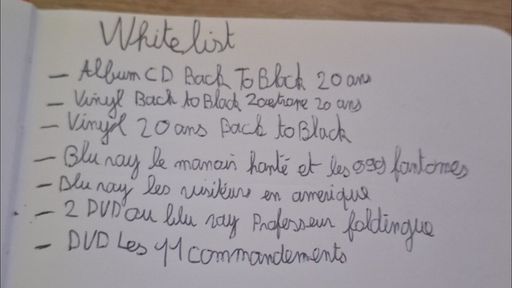 Whitelist
- Album CD Back To Black 20 ans
- Vinyl Back to Black 20 ans
- Vinyl 20 ans Back to Black
- Blu ray le manoir hanté et les 999 fantomes
- Blu ray les visiteurs en amerique
- 2 DVD ou blu ray Professeur foldingue
- DVD Les 11 commandements